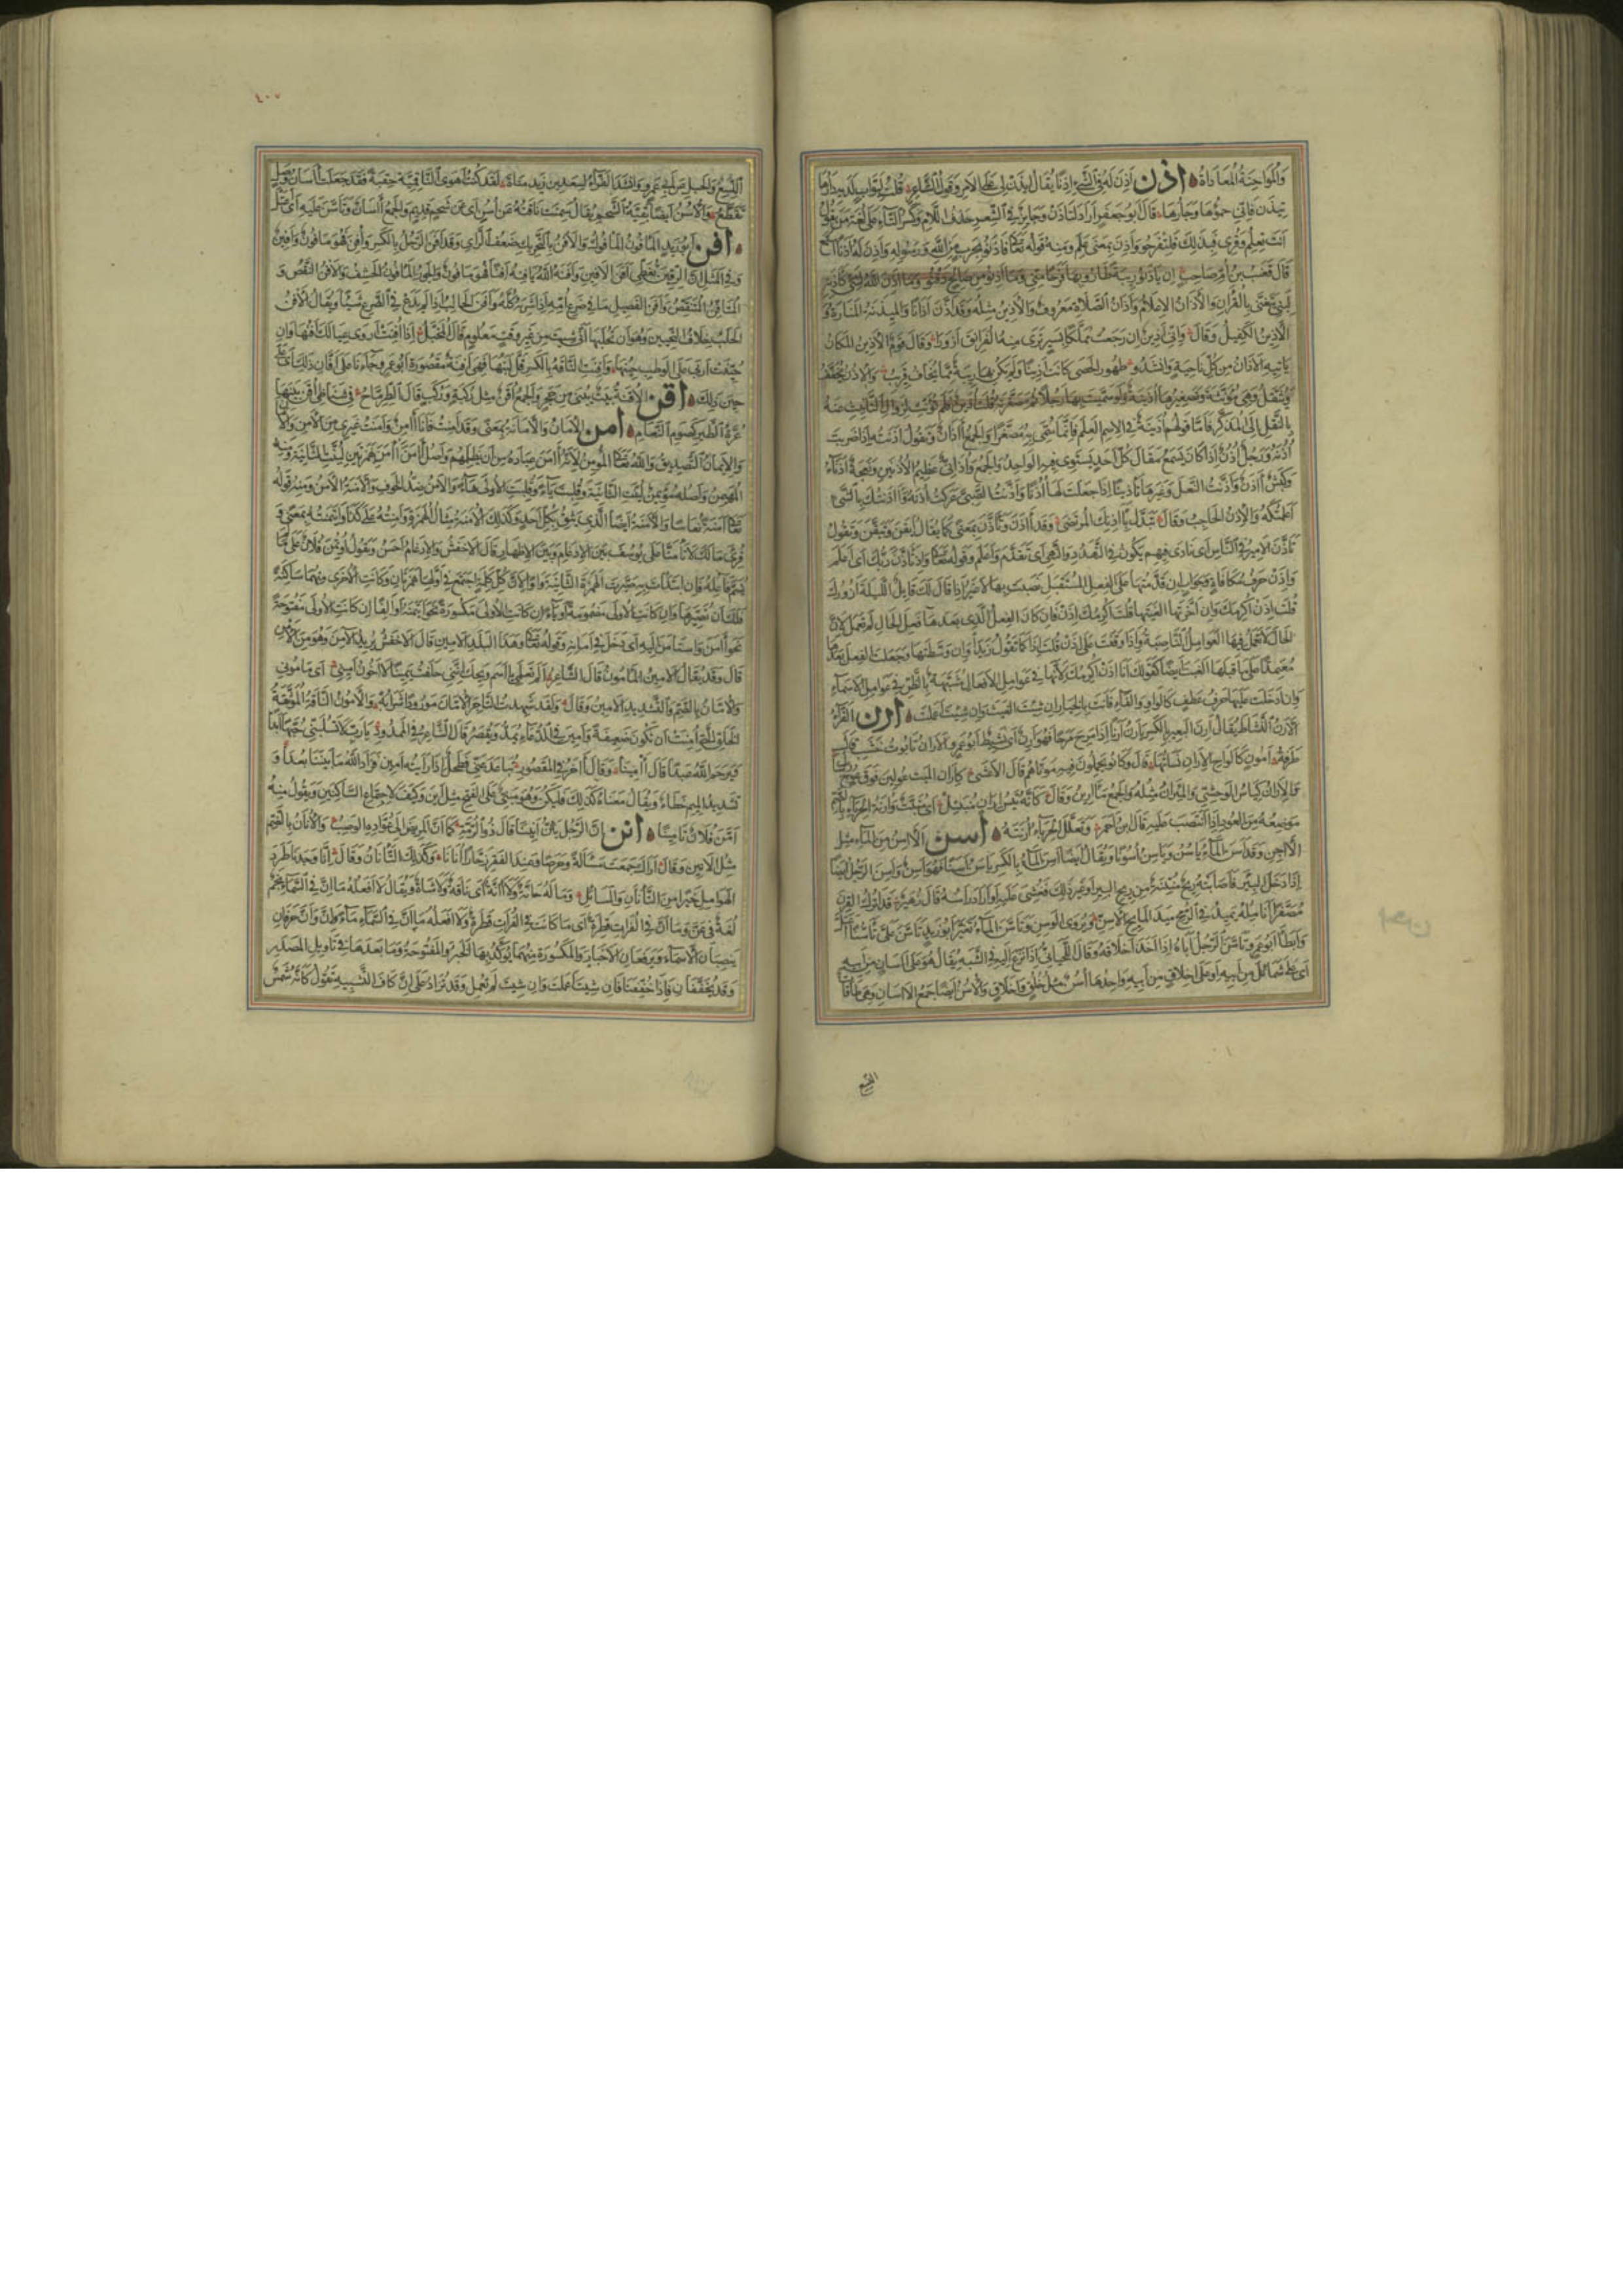 والمواجنة المعاداة اذن اذن له في الشيء اذنا يقال ايذن لي على الامير وقول الشاعر قلت لبواب لديه دارها
تيذن فاني حمؤها وجارها قال ابو جعفر اراد لتاذن وجايز في الشعر حذف اللام وكسر التاء على لغة من يقول
انت تعلم وقرئ فبذلك فلتفرحوا واذن بمعنى علم ومنه قوله تعالى فاذنوا بحرب من الله ورسوله واذن له اذنا استمع
قال قعنب بن ام صاحب ان ياذنوا ريبة طاروا بها فرحا مني وما اذنوا من صالح دفنوا وما اذن الله لشيء كاذنه
لنبي يتغنى بالقران والاذان الاعلام واذان الصلاة معروف والاذين مثله وقد اذن اذانا والميذنة المنارة و
الاذين الكفيل وقال واني اذين ان رجعت مملكا بسير ترى منه الفرانق ازورا وقال قوم الاذين المكان
ياتيه الاذان من كل ناحية وانشدوا طهور الحصى كانت اذينا ولم تكن بها ريبة مما يخاف قريب والاذن تخفف
وتثقل وهي مؤنثة وتصغيرها اذينة ولو سميت بها رجلا ثم صغرته قلت اذين فلم تؤنث لزوال التانيث عنه
بالنقل الى المذكر فاما قولهم اذينة في الاسم العلم فانما سمي به مصغرا والجمع اذان وتقول اذنته اذا ضربت
اذنه ورجل اذن اذا كان يسمع مقال كل احد يستوي فيه الواحد والجمع واذاني عظيم الاذنين ونعجة اذناء
وكبش اذن واذنت النعل وغيرها تاذينا اذا جعلت لها اذنا واذنت الصبي عركت اذنه واذنتك بالشيء
اعلمتكه والاذن الحاجب وقال تبدل باذنك المرتضى وقد اذن وتاذن بمعنى كما يقال ايقن وتيقن وتقول
تاذن الامير في الناس اي نادى فيهم يكون في التهدد والنهي اي تقدم واعلم وقوله تعالى واذ تاذن ربك اي اعلم
واذن حرف مكافاة وجواب ان قدمتها على الفعل المستقبل نصبت بها لا غير اذا قال لك قايل الليلة ازورك
قلت اذن اكرمك وان اخرتها الغيتها قلت اكرمك اذن فان كان الفعل الذي بعدها فعل الحال لم تعمل لان
الحال لا تعمل فيها العوامل الناصبة واذا وقفت على اذن قلت اذا كما تقول زيدا وان وسطتها وجعلت الفعل بعدها
معتمدا على ما قبلها الغيت ايضا كقولك انا اذن اكرمك لانها في عوامل الافعال مشبهة بالظن في عوامل الاسماء
وان ادخلت عليها حرف عطف كالواو والفاء فانت بالخيار ان شيت الغيت وان شيت اعملت ارن الفراء
الارن النشاط يقال ارن البعير بالكسر يارن ارنا اذا مرح مرحا فهو ارن اي نشيط ابو عمرو الاران تابوت خشب قال
طرفة امون كالواح الاران نساتها قال وكانوا يحملون فيه موتاهم قال الاعشى كاران الميت عولين فوق عوج رسال
والاران كناس الوحشي والميران مثله والجمع مارين وقال كانه تيس اران منبتل اي منبت وارنة الحرباء بالضم
موضعه من العود اذا انتصب عليه قال بن احمر وتعلل الحرباء ارنته اسن الاسن من الماء مثل
الاجن وقد اسن الماء ياسن وياسن اسونا ويقال ايضا اسن الماء بالكسر ياسن اسنا فهو اسن واسن الرجل ايضا
اذا دخل البير فاصابته ريح منتنة من ريح البير او غير ذلك فغشي عليه او دار راسه قال زهير قد اترك القرن
مصفرا انامله يميد في الرمح ميد المايح الاسن ويروى الوسن وتاسن الماء تغير ابو زيد تاسن علي تاسنا اعتل
وابطا ابو عمرو تاسن الرجل اباه اذا اخذ اخلاقه وقال اللحياني اذا نزع اليه في الشبه يقال هو على اسان من ابيه
اي على شمائل من ابيه او على اخلاق من ابيه واحدها اسن مثل خلق واخلاق والاسن ايضا جمع الاسان وهي طاقات
النسع
٤٠٧
النسع والحبل عن ابي عمرو وانشد الفراء لسعد بن زيد مناة لقد كنت اهوى الناقمية حقبة فقد جعلت اسان وصل
تقطع والاسن ايضا بقية الشحم يقال سمنت ناقته عن اسن اي عن شحم قديم والجمع اسان وتاسن عليه اي مثل
افن ابو زيد المافون المافوك والافن بالتحريك ضعف الراي وقد افن الرجل بالكسر وافن فهو مافون وافين
وفي المثل ان الرقين تغطي افن الافين وافنه الله يافنه افنا فهو مافون والجوز المافون الحشف والافن النقص و
المتافن المتنقص وافن الفصيل ما في ضرع امه اذا شربه كله وافن الحالب اذا لم يدع في الضرع شيئا ويقال الافن
الحلب خلاف التحيين وهو ان تحلبها انى شيت من غير وقت معلوم قال المخبل اذا افنت اروى عيالك افنها وان
حينت اربى على الوطب حينها وافنت الناقة بالكسر قل لبنها فهي افنة مقصورة ابو عمرو جاءنا على افان ذلك اي على
حين ذلك اقن الاقنة بيت يبنى من حجر والجمع اقن مثل ركبة وركب قال الطرماح في شناظي اقن بينها
عرة الطير كصوم النعام امن الامان والامانة بمعنى وقد امنت فانا امن وامنت غيري من الامن والا
والايمان التصديق والله تعالى المؤمن لانه امن عباده من ان يظلمهم واصل امن اامن بهمزتين لينت الثانية ومنه
المهيمن واصله مؤيمن لينت الثانية وقلبت ياء وقلبت الاولى هاء والامن ضد الخوف والامنة الامن ومنه قوله
تعالى امنة نعاسا والامنة ايضا الذي يثق بكل احد وكذلك الامنة مثال الهمزة وامنته على كذا وايتمنته بمعنى و
قرئ مالك لا تامنا على يوسف بين الادغام وبين الاظهار قال الاخفش والادغام احسن وتقول اوتمن فلان على ما
لم يسم فاعله فان ابتدات به صيرت الهمزة الثانية واوا لان كل كلمة اجتمع في اولها همزتان وكانت الاخرى منهما ساكنة
فلك ان تصيرها واوا ان كانت الاولى مضمومة او ياء ان كانت الاولى مكسورة نحو ايتمنه او الفا ان كانت الاولى مفتوحة
نحو امن واستامن اليه اي دخل في امانه وقوله تعالى وهذا البلد الامين قال الاخفش يريد الامن وهو من الامن
قال وقد يقال الامين المامون قال الشاعر الم تعلمي يا اسم ويحك انني حلفت يمينا لا اخون اميني اي ماموني
والامان بالضم والتشديد الامين وقال ولقد شهدت التاجر الامان مورودا شرابه والامون الناقة الموثقة
الخلق التي امنت ان تكون ضعيفة وامين في الدعاء يمد ويقصر قال الشاعر في الممدود يارب لا تسلبني حبها ابدا
ويرحم الله عبدا قال امينا وقال اخر في المقصور تباعد عني فطحل اذ رايته امين فزاد الله ما بيننا بعدا و
تشديد الميم خطاء ويقال معناه كذلك فليكن وهو مبني على الفتح مثل اين وكيف لاجتماع الساكنين وتقول منه
امن فلان تامينا انن ان الرجل يئن انينا قال ذو الرمة كما ان المريض الى عواده الوصب والانان بالضم
مثل الانين وقال اراك جمعت مسالة وحرصا وعند الفقر زحارا انانا وكذلك التانان وقال انا وجدنا طرد
الهوامل خيرا من التانان والمسائل وما له حانة ولا انة اي ناقة ولا شاة ويقال لا افعله ما ان في السماء نجم
لغة في عن وما ان في الفرات قطرة اي ما كانت في الفرات قطرة ولا افعله ما ان في السماء ماء وان وان حرفان
ينصبان الاسماء ويرفعان الاخبار والمكسورة منهما يؤكد بها الخبر والمفتوحة وما بعدها في تاويل المصدر
وقد يخففان فاذا خففتا فان شيت اعملت وان شيت لم تعمل وقد تزاد على ان كاف التشبيه تقول كانه شمس